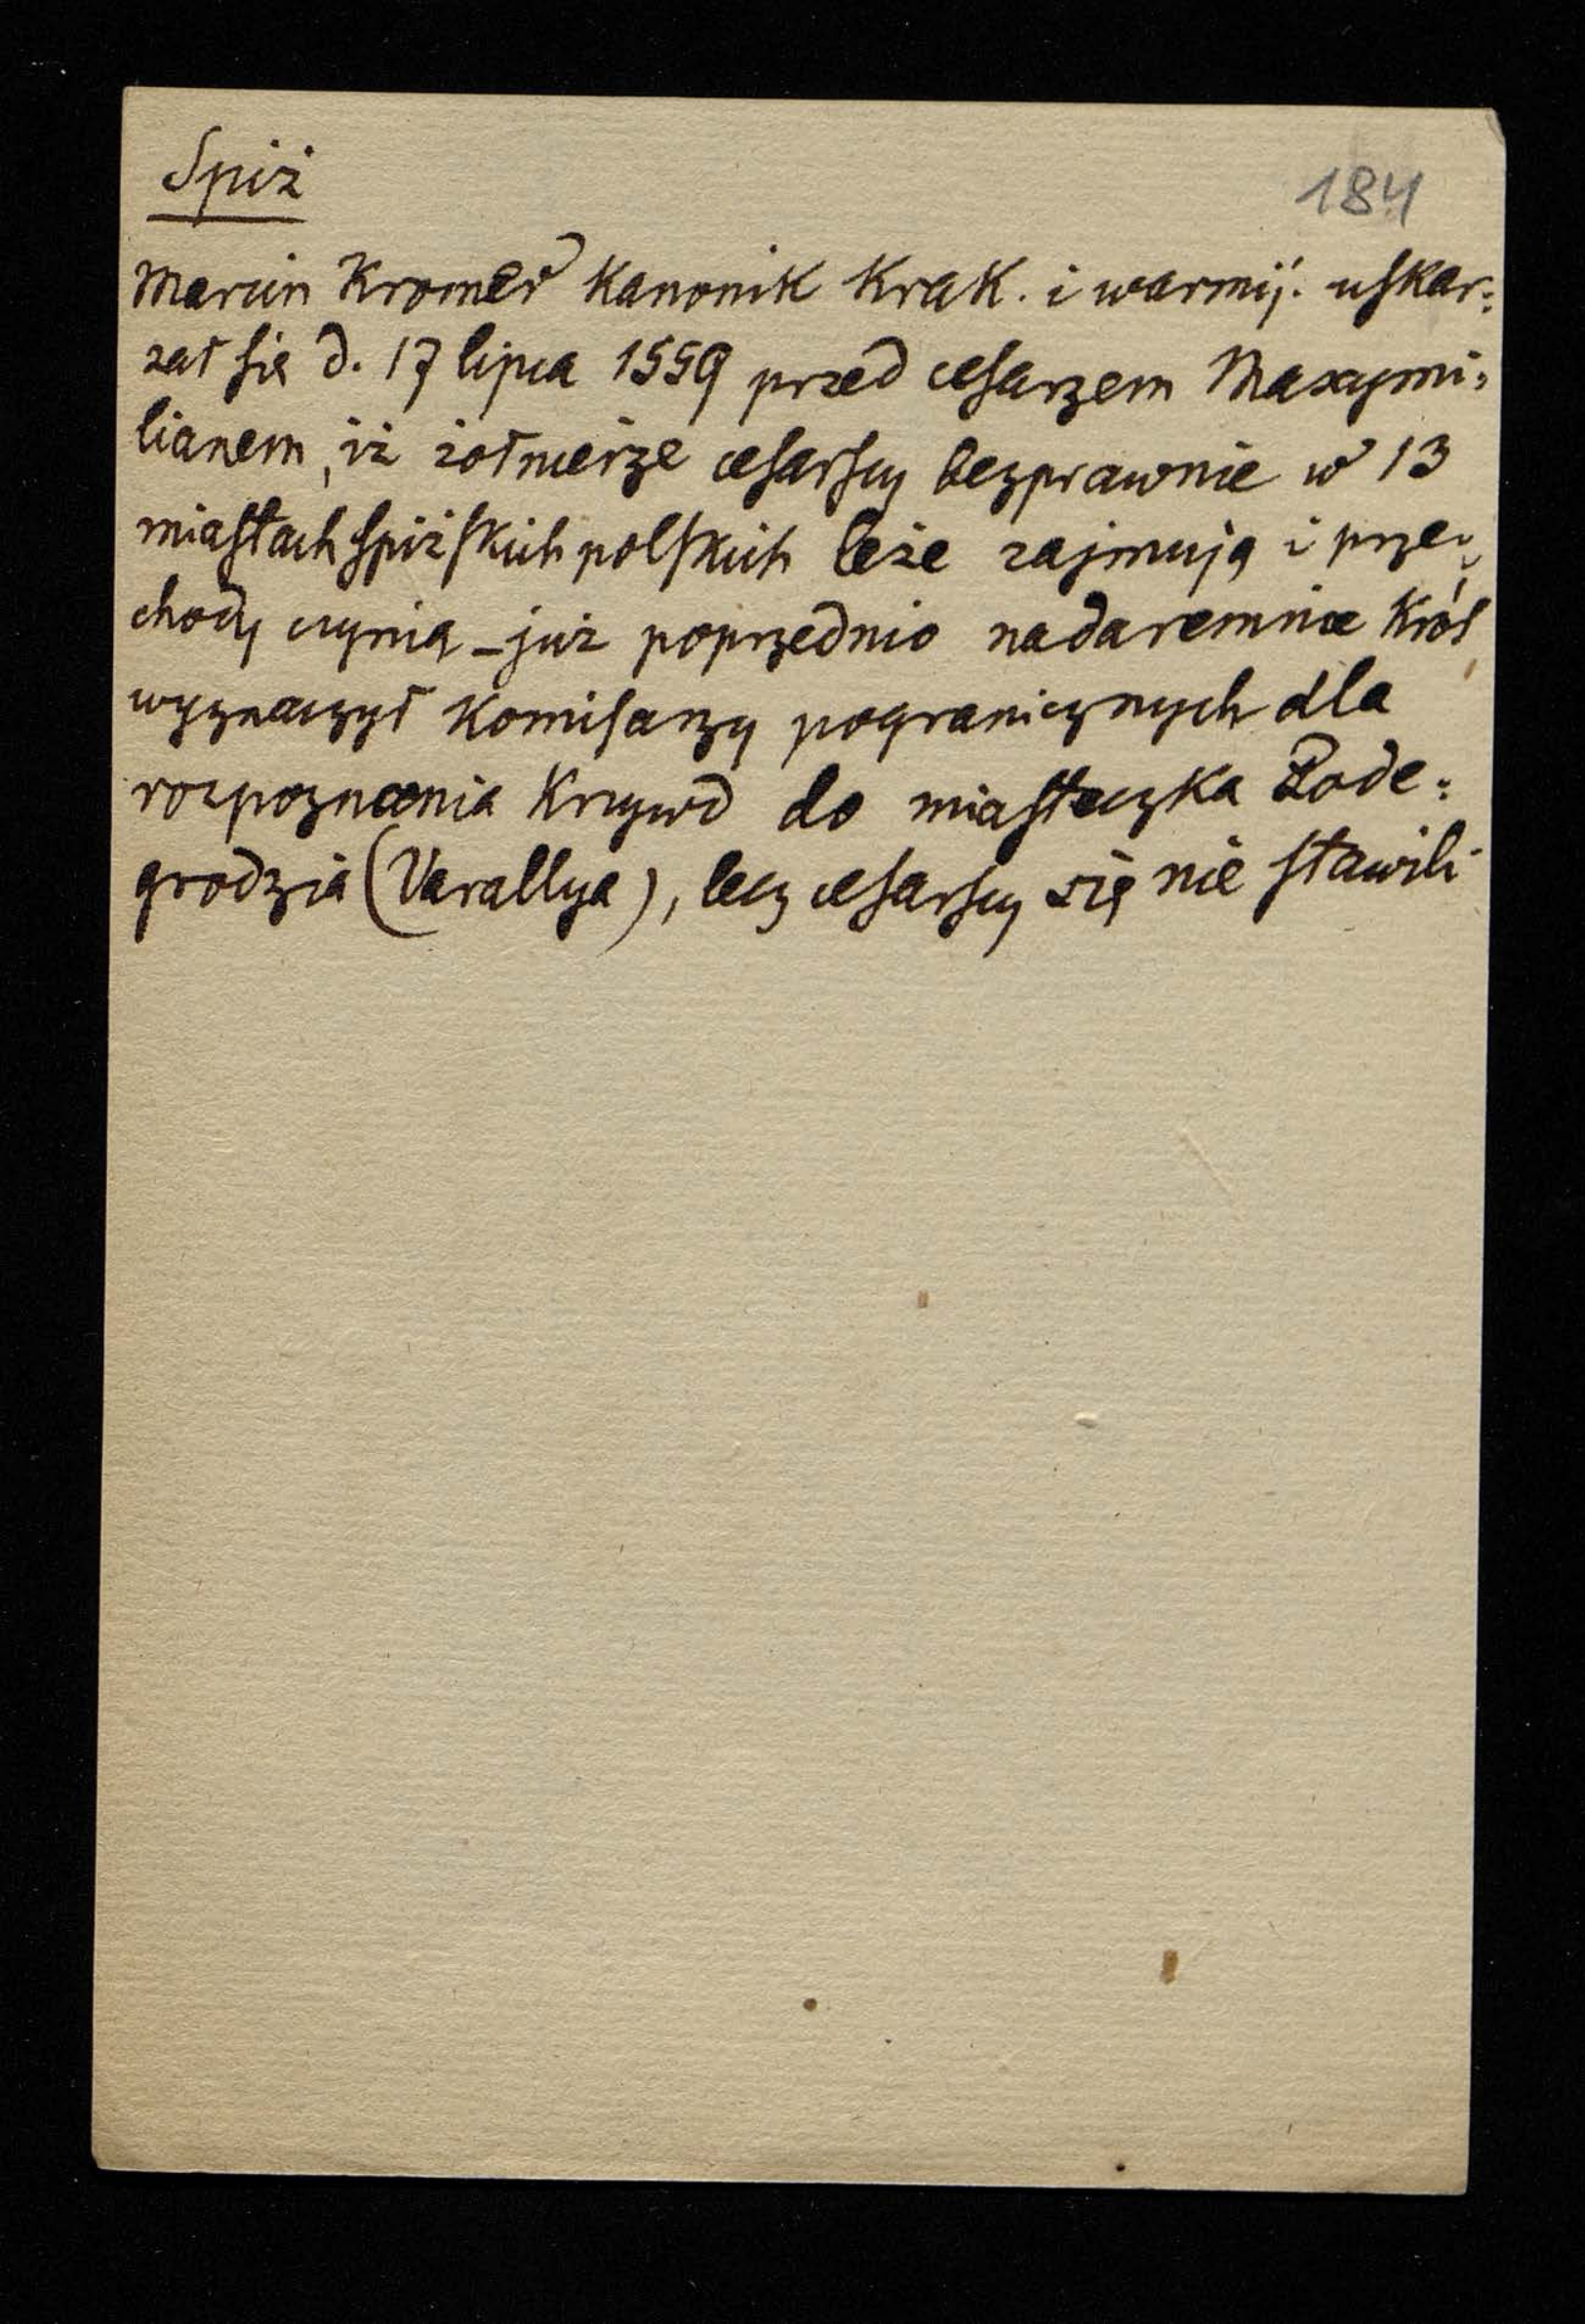 Spiż
184
Marcin Kromer kanonik Krak. i warmij. uskar:
żał się d. 17 lipca 1559 przed cesarzem Maxymi:
lianem, iż żołnierze cesarscy bezprawnie w 13
miastach spiżskich polskich leże zajmują i prze:
chody czynią – już poprzednio nadaremnie Król
wyznaczył komisarzy pogranicznych dla
rozpoznania krzywd do miasteczka Pode:
grodzia (Varallya), lecz cesarscy się nie stawili